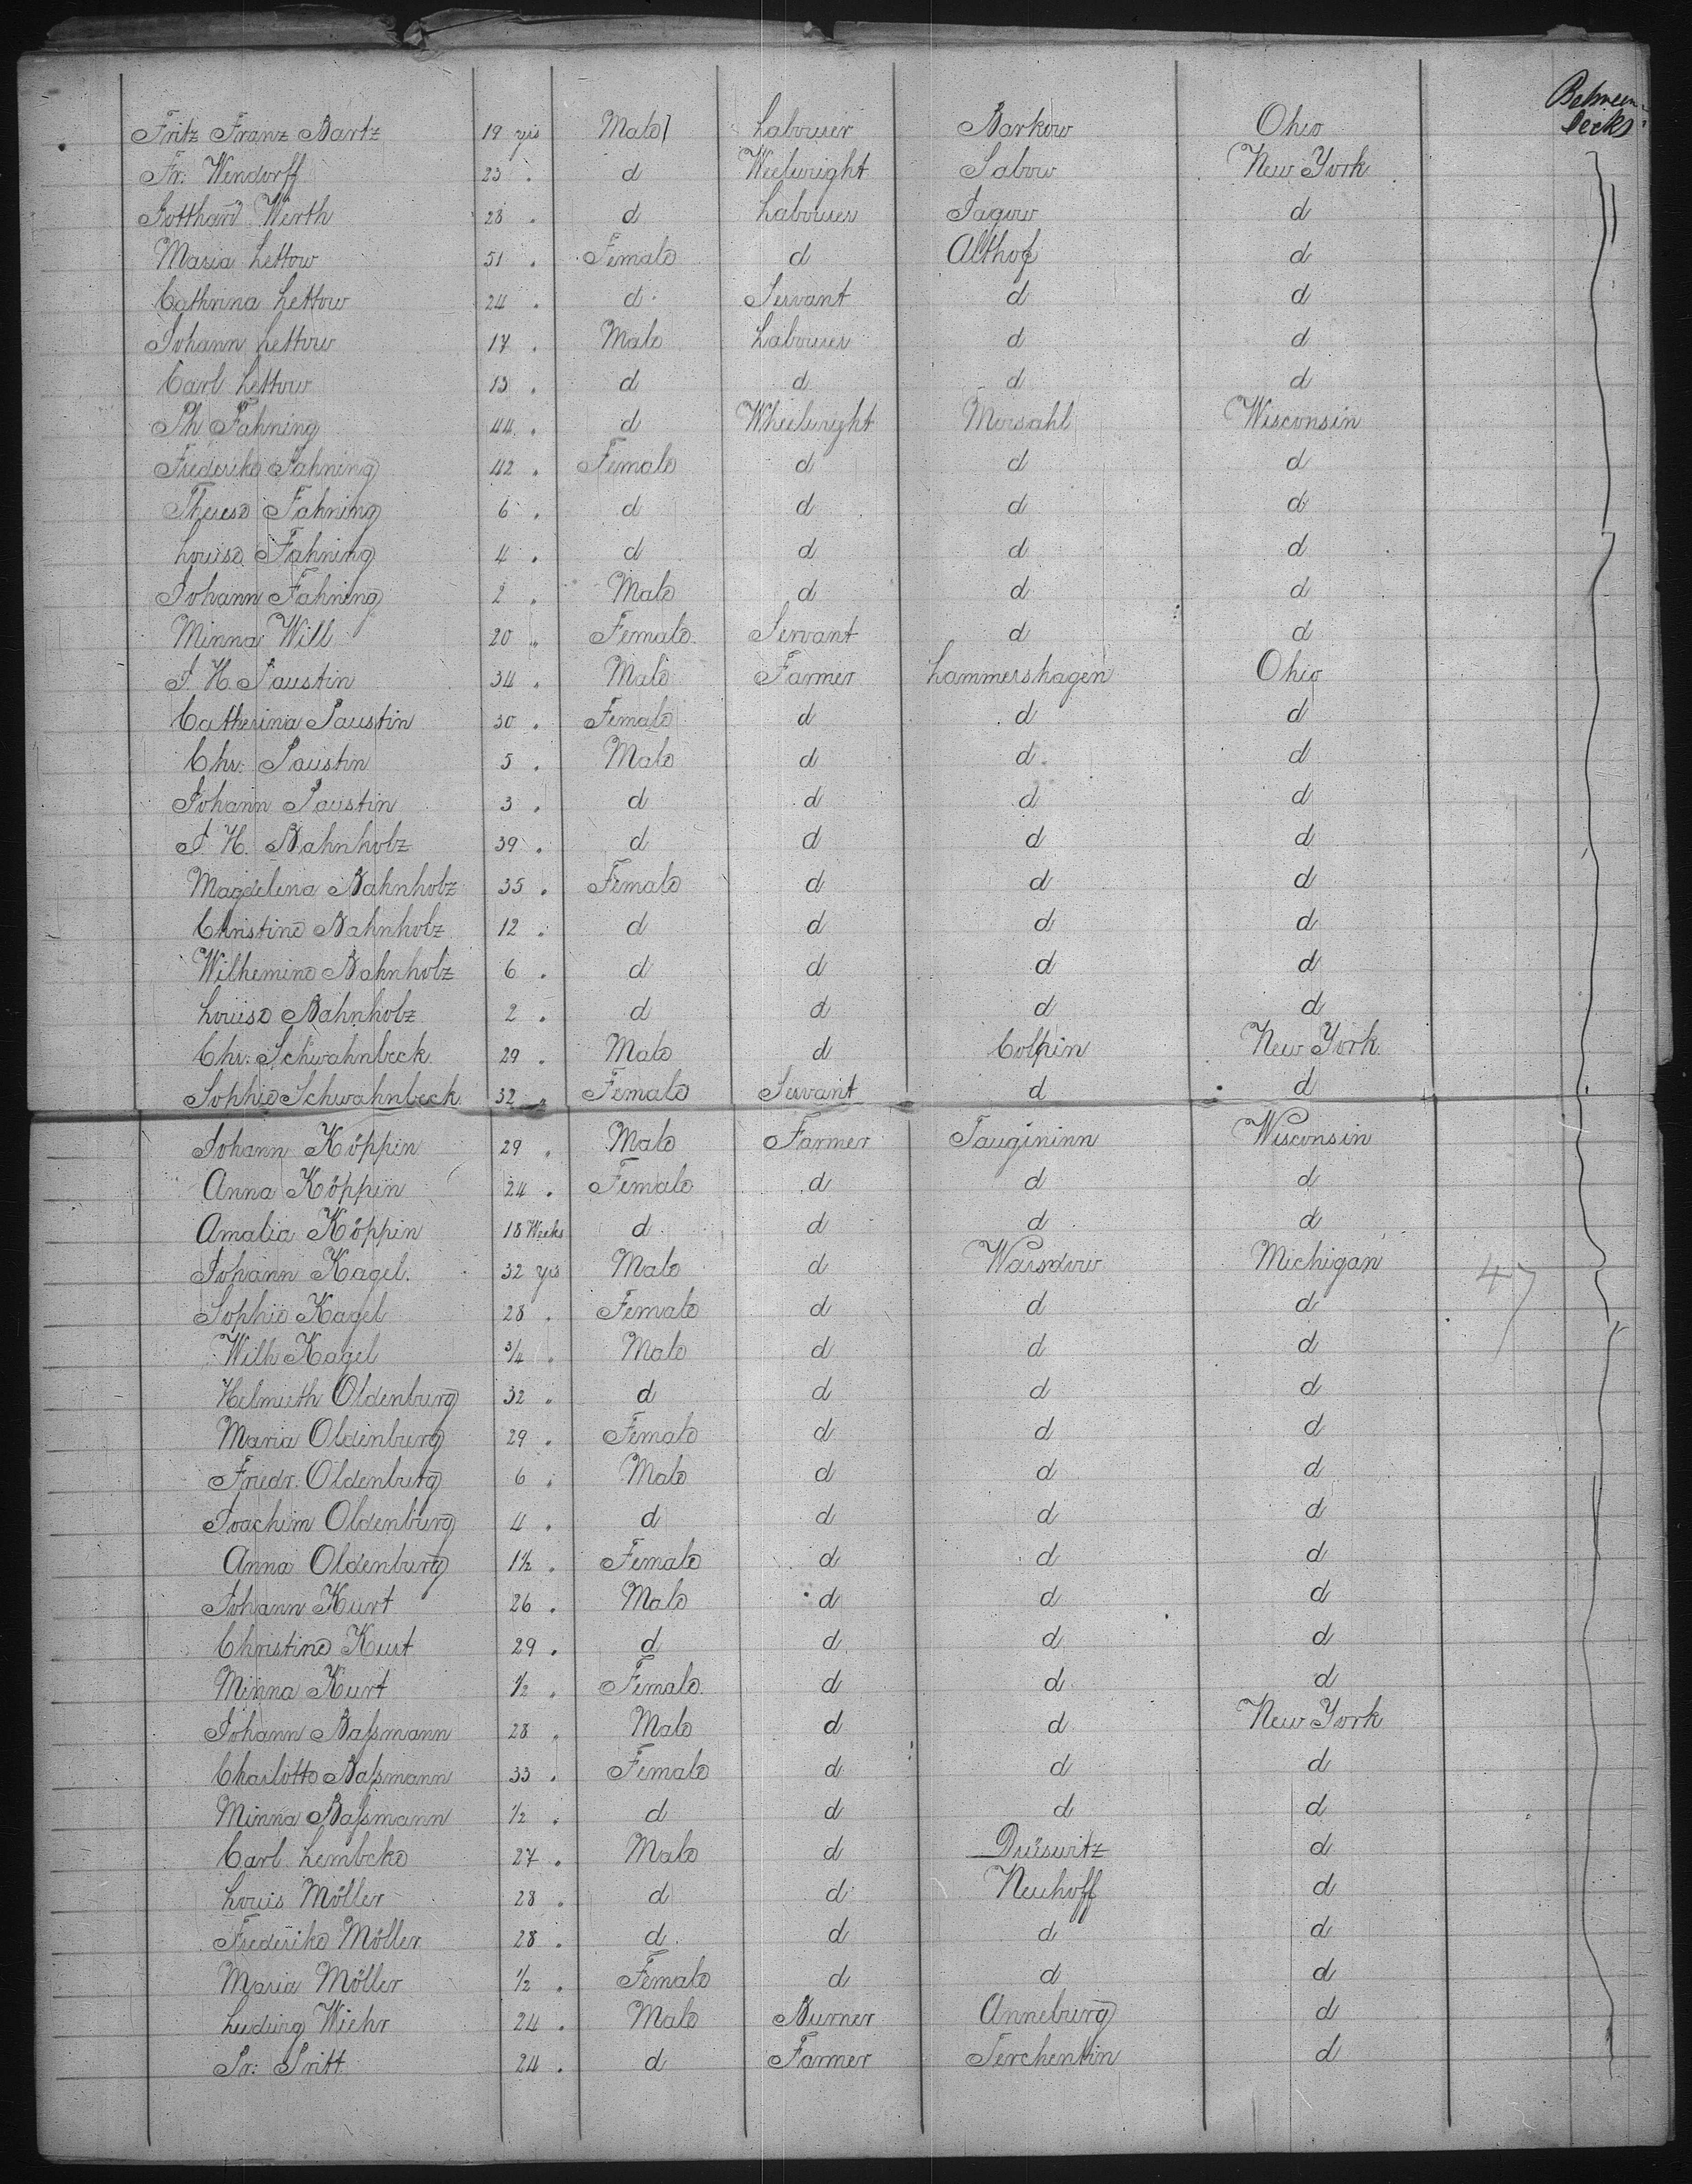 Between decks
Fritz Franz Bartz 19 yrs Male Labourer Barkow Ohio
Fr: Wendorff 23 " d Weelwright Sabow New York
Gotthard Werth 28 " d Labourer Jagow d
Maria Lettow 51 " Female d Althof d
Cathrina Lettow 24 " d Servant d d
Johann Lettow 17 " Male Labourer d d
Carl Lettow 13 " d d d d
Fahning 44 " d Wheelwright Wisconsin
Frederike Fahning 42 " Female d d d
Therese Fahning 6 " d d d d
Louise Fahning 4 " d d d d
Johann Fahning 2 " Male d d d
Minna Will 20 " Female Servant d d
J. H. Paustin 34 " Male Farmer Lammershagen Ohio
Catherina Paustin 30 " Female d d d
Chr: Paustin 5 " Male d d d
Johann Paustin 3 " d d d d
J. H. Bahnholz 39 " d d d d
Magdelena Bahnholz 35 " Female d d d
Christine Bahnholz 12 " d d d d
Wilhemine Bahnholz 6 " d d d d
Louise Bahnholz 2 " d d d d
Chr: Schwahnbeck 29 " Male d Colpin New York
Sophie Schwahnbeck 32 " Female Servant d d
Johann Köppin 29 " Male Farmer Wisconsin
Anna Köppin 24 " Female d d d
Amalia Köppin 18 Weeks d d d d
Johann Kagel 32 yrs Male d Michigan
47
Sophie Kagel 28 " Female d d d
Wilh Kagel 3/4 " Male d d d
Helmuth Oldenburg 32 " d d d d
Maria Oldenburg 29 " Female d d d
Friedr. Oldenburg 6 " Male d d d
Joachim Oldenburg 4 " d d d d
Anna Oldenburg 1½ " Female d d d
Johann Kurt 26 " Male d d d
Christine Kurt 29 " d d d d
Minna Kurt ½ " Female d d d
Johann Baßmann 28 " Male d d New York
Charlotte Baßmann 33 " Female d d d
Minna Baßmann ½ " d d d d
Carl Lembcke 27 " Male d d
Louis Möller 28 " d d Neuhoff d
Frederike Möller 28 " d d d d
Maria Möller ½ " Female d d d
Ludwig Wiehr 24 " Male Burner Anneburg d
Pritt 24 " d Farmer d